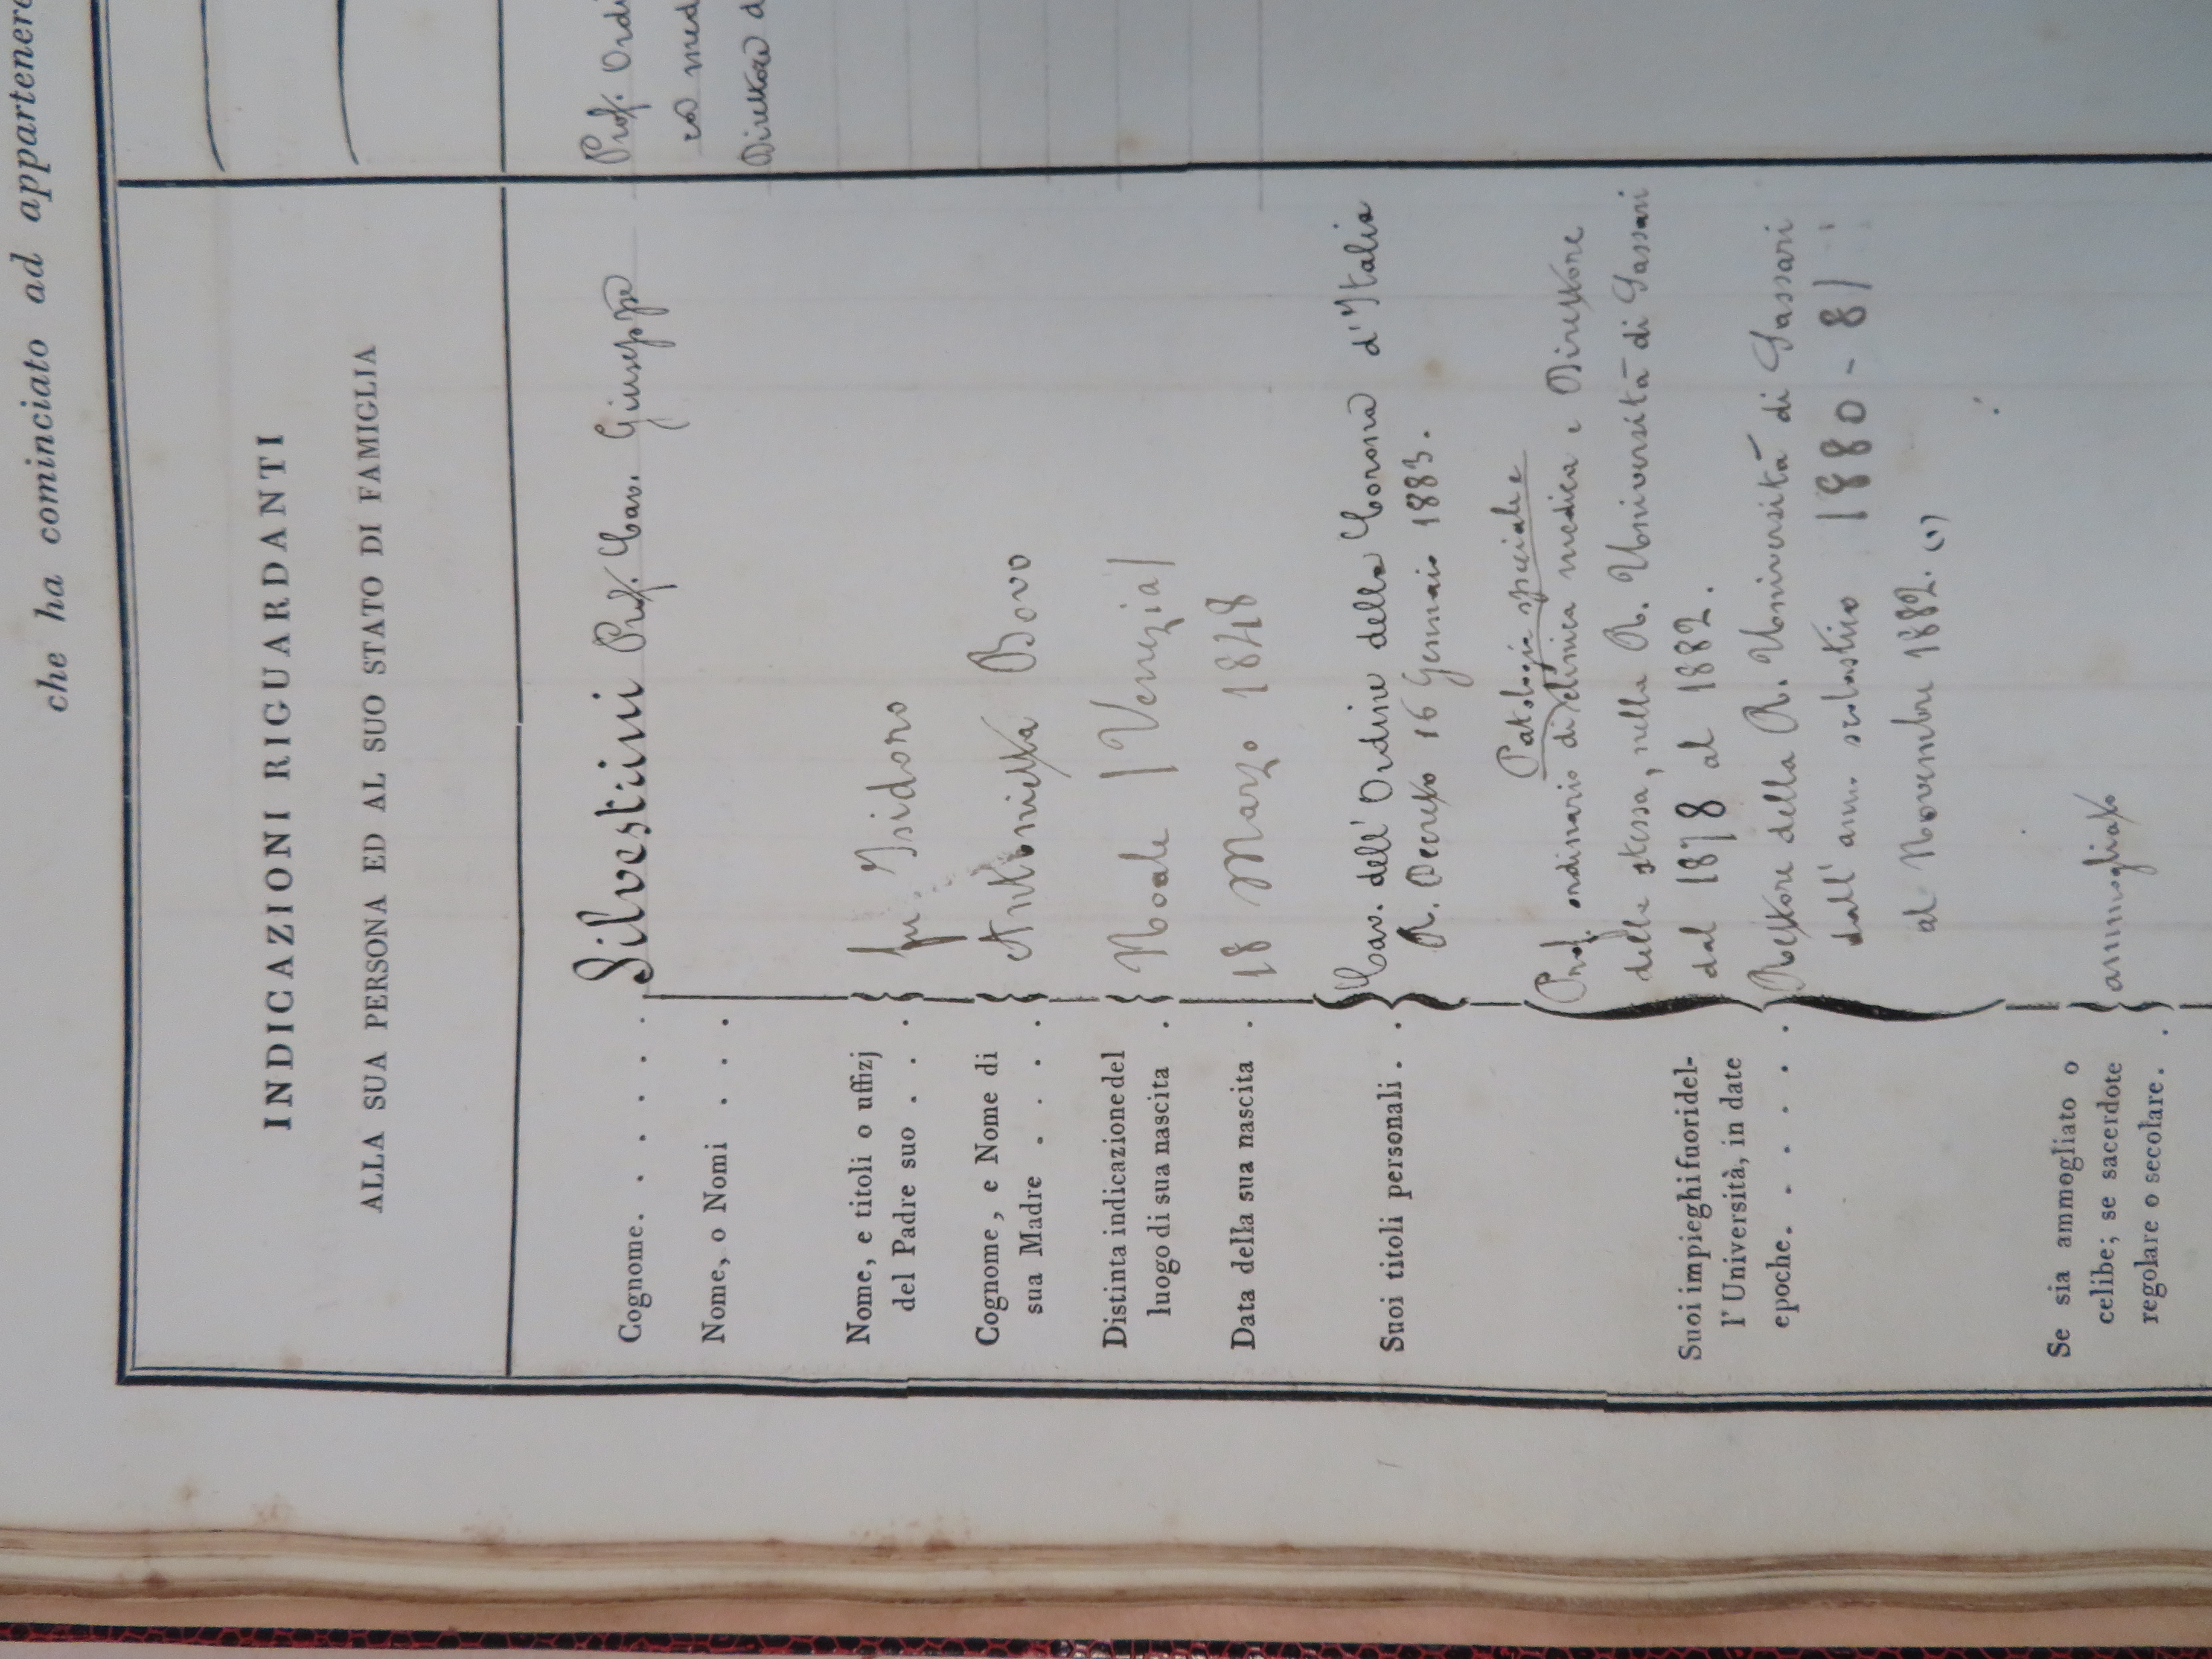 che ha cominciato ad appartenere
INDICAZIONI RIGUARDANTI
ALLA SUA PERSONA ED AL SUO STATO DI FAMIGLIA
Cognome. . . . . . Silvestrini Prof. Cav. Giuseppe
Nome, o Nomi . . .
Nome, e titoli o uffizj
del Padre suo . . . fu Isidoro
Cognome, e Nome di
sua Madre . . . . Antonietta Bovo
Distinta indicazione del
luogo di sua nascita . Noale (Venezia)
Data della sua nascita . 18 Marzo 1848
Suoi titoli personali . . Cav. dell' Ordine della Corona d'Italia
R. Decreto 16 Gennaio 1883.
Suoi impieghi fuori del-
l' Università, in date
epoche. . . . . .
Patologia speciale
Prof. ordinario di clinica medica e Direttore
della stessa, nella R. Università di Sassari
dal 1878 al 1882.
Rettore della R. Università di Sassari
dall' anno scolastico 1880-81
al Novembre 1882. (1)
Se sia ammogliato o
celibe; se sacerdote
regolare o secolare. . ammogliato
Prof. Ordi
med
Direttore d